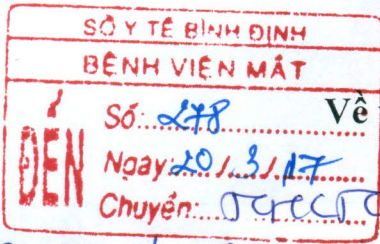 SỞ Y TẾ BÌNH ĐỊNH
BỆNH VIỆN MẮT
ĐẾN
Số: 278
Về
Ngày: 20 / 3 / 17
Chuyển: